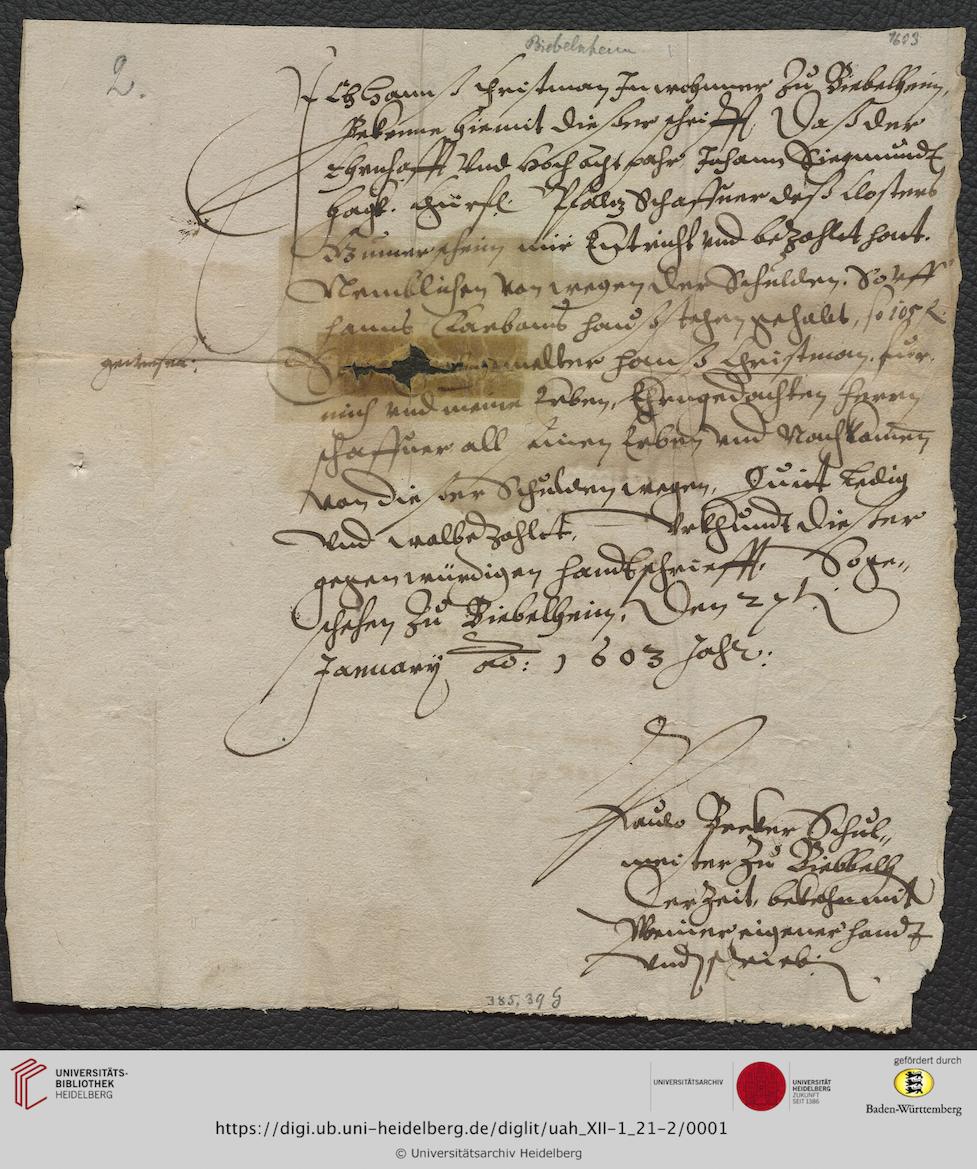 Biebelnheim
1603
2.
Ich Hannß Christman Inwohner Zu Biebelheim,
Bekenne hiemit dießer schrifft, Daß der
Ehrnhafft Vnd Hochacht Johann Siegmundt
Churfl. Pfaltz Schaffner deß Closters
mir Entricht vnd bezahlt hat.
Nemblichen von wegen der Schulden, So vff
Hanns hauß stehen gehabt, so 105 fl.
gewesen:
melter Hanß Christman, fur
mich vnd meine Erben, Ehrngedachten Herrn
schaffner all seinen Erben vnd Nachkomen
von dießer Schulden wegen, Quitt Ledig
vnd wolbezahlt, Vrkhundt dießer
gegenwürdigen handtschriefft. Soge„
schehen Zu Biebelheim, Den 27t.
January ao: 1603 Jahr.
Paulo Becker Schul„
meister Zu Biebbelh
der Zeit, bekehn mit
Meiner eigener handt
vndschrieb
385,39 G
UNIVERSITÄTS-
BIBLIOTHEK
HEIDELBERG
UNIVERSITÄTSARCHIV
UNIVERSITÄT
HEIDELBERG
ZUKUNFT
SEIT 1386
gefördert durch
Baden-Württemberg
https://digi.ub.uni-heidelberg.de/diglit/uah_XII-1_21-2/0001
© Universitätsarchiv Heidelberg